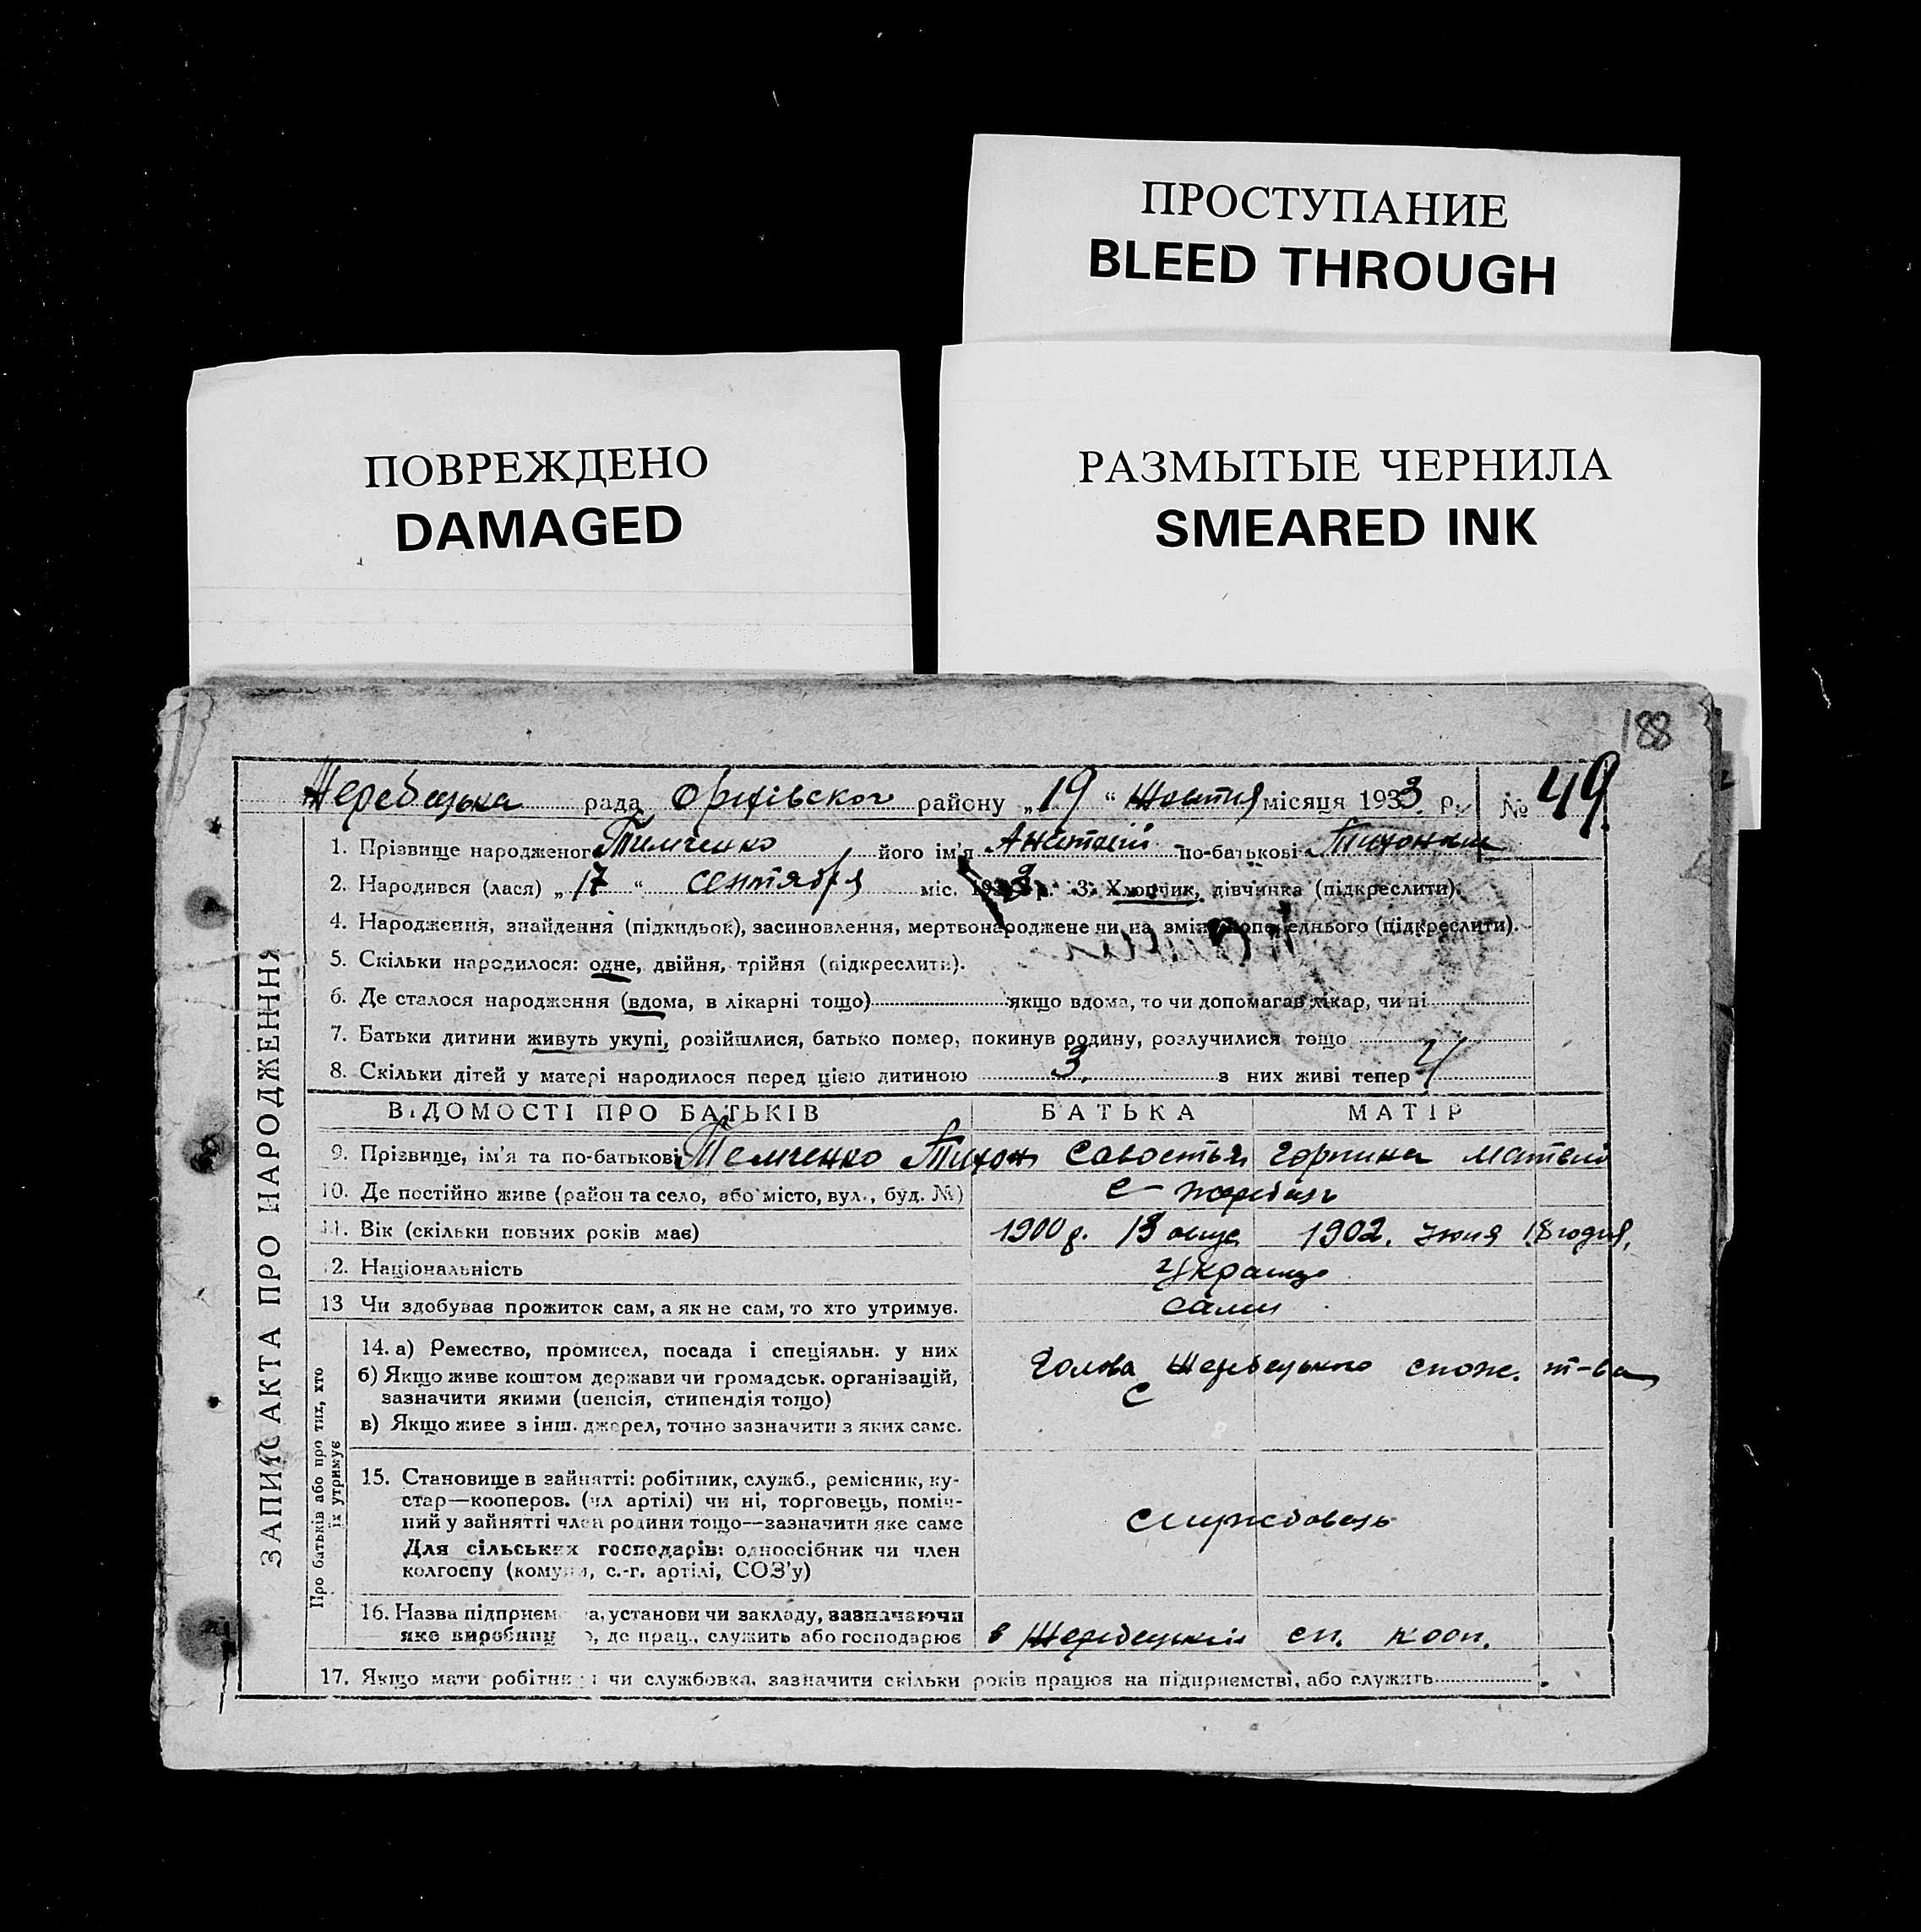 ПРОСТУПАНИЕ
BLEED THROUGH
ПОВРЕЖДЕНО
DAMAGED
РАЗМЫТЫЕ ЧЕРНИЛА
SMEARED INK
188
Жеребецька рада Оріхівског району „19“ Жовтня місяця 1933 р. № 49
ЗАПИС АКТА ПРО НАРОДЖЕННЯ
1. Прізвище народженог Тимченко його ім'я по-батькові
2. Народився (лася) „17“ сентября міс. 193 р. 3. Хлопчик, дівчинка (підкреслити).
4. Народження, знайдення (підкидьок), засиновлення, мертвонароджене чи на зміну попереднього (підкреслити).
5. Скільки народилося: одне, двійня, трійня (підкреслити).
6. Де сталося народження (вдома, в лікарні тощо) якщо вдома, то чи допомагав лікар, чи ні
7. Батьки дитини живуть укупі, розійшлися, батько помер, покинув родину, розлучилися тощо
8. Скільки дітей у матері народилося перед цією дитиною 3. з них живі тепер 4
ВІДОМОСТІ ПРО БАТЬКІВ БАТЬКА МАТІР
9. Прізвище, ім'я та по-батькові Темченко Тихон Савостьян Горпина Матвій
10. Де постійно живе (район та село, або місто, вул., буд. №) с Жеребець
11. Вік (скільки повних років має) 1900 р. 1902. Июня 18
12. Національність
13 Чи здобуває прожиток сам, а як не сам, то хто утримує. сами
Про батьків або про тих, хто їх утримує
14. а) Ремество, промисел, посада і спеціяльн. у них Голова Жеребецького спож. т-ва
б) Якщо живе коштом держави чи громадськ. організацій,
зазначити якими (пенсія, стипендія тощо)
в) Якщо живе з інш. джерел, точно зазначити з яких саме.
15. Становище в зайнятті: робітник, служб., ремісник, ку-
стар—кооперов. (чл артілі) чи ні, торговець, поміч-
ний у зайнятті член родини тощо—зазначити яке саме службовець
Для сільських господарів: одноосібник чи член
колгоспу (комуни, с.-г. артілі, СОЗ'у)
16. Назва підприєм а, установи чи закладу, зазначаючи
яке виробниц о, де прац., служить або господарює в Жеребецькій сп. кооп.
17. Якщо мати робітни чи службовка, зазначити скільки років працює на підприємстві, або служить